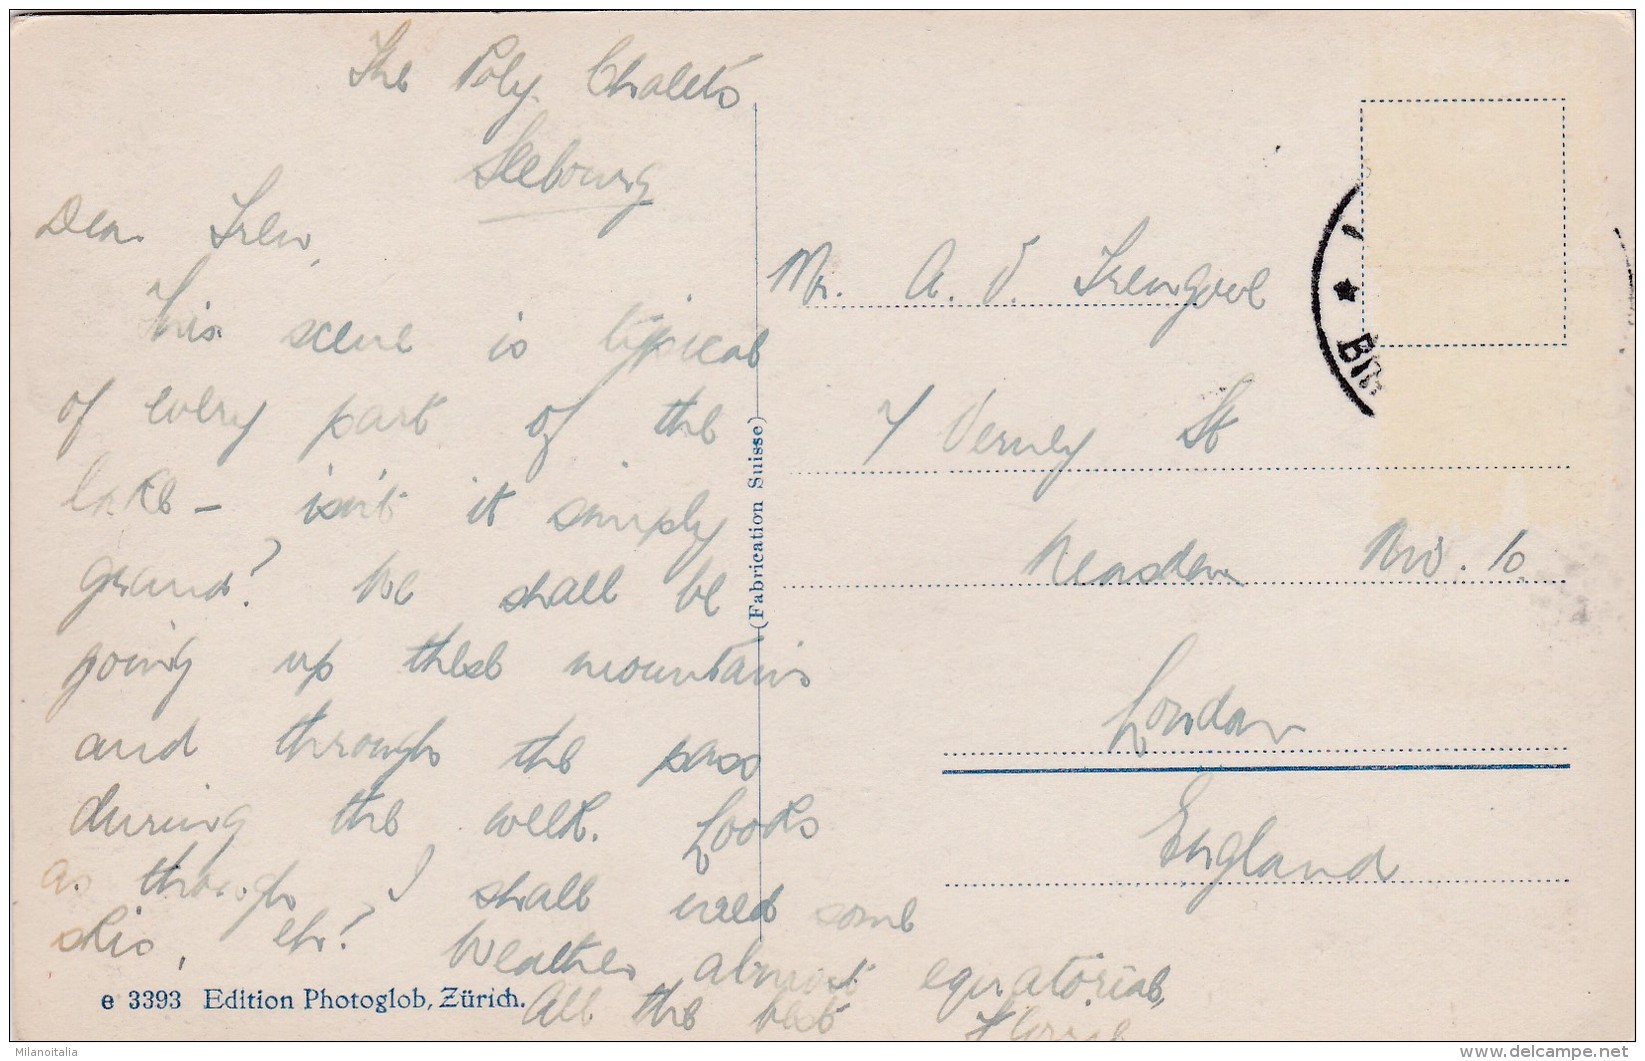 The Poly. Chalets
Seebourg
Dear Tren,
This scene is typical
of every part of the
lake – isn't it simply
grand? We shall be
going up these mountains
and through the pass
during the week. Looks
as though I shall need some
skis, eh? Weather almost equatorial,
All the best
e 3393 Edition Photoglob, Zürich.
(Fabrication Suisse)
Mr. A. V. Trengove
7 Verney St
Neasden N.W. 10.
London
England
Milanoitalia
delcampe.net